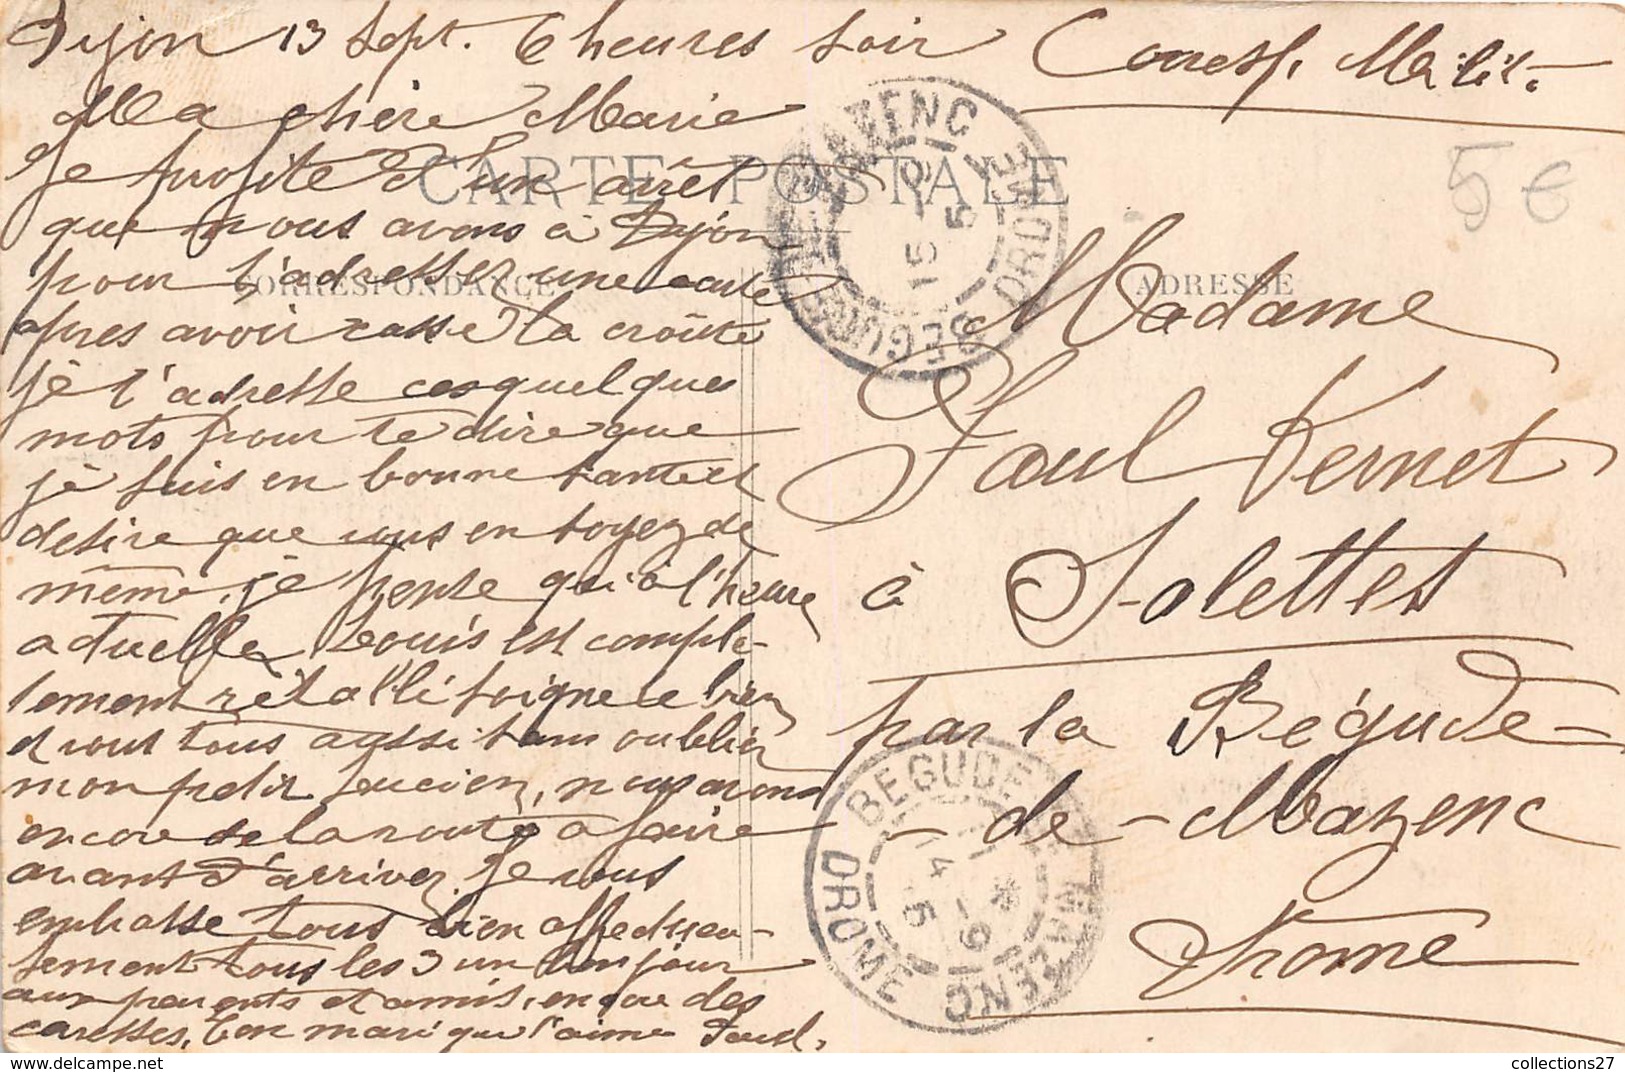 Dijon 13 Sept. 6 heures soir
Corresp. Milit.
Ma chère Marie
CARTE POSTALE
Je profite d'un arrêt
que nous avons à Dijon
pour t'adresser une carte
CORRESPONDANCE
ADRESSE
apres avoir casse la croûte
je t'adresse ces quelques
mots pour te dire que
je suis en bonne sante et
desire que vous en soyez de
même, je pense qu'à l'heure
actuelle Louis est comple-
tement rétabli soigne le bien
et vous tous aussi sans oublier
mon petit Lucien, nous avons
encore de la route a faire
avant d'arriver. Je vous
embrasse tous bien affectueu-
sement tous les 3 un bonjour
aux parents et amis, encore des
caresses, ton mari qui t'aime Paul.
Madame
Paul Vernet
à Salettes
par la Bégude-
-de-Mazenc
Drome
MAZENC
BEGUDE
DROME
15 -9
15
BEGUDE DE MAZENC
DROME
14 -9
15
5 €
collections27